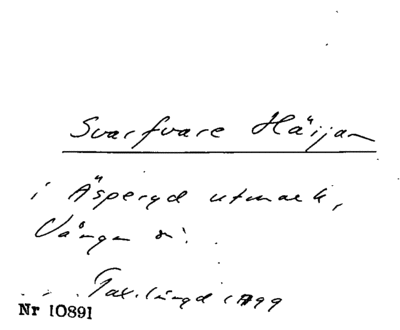 Svarfvare Häijan
i Äsperyd utmark,
Vånga sn.
Tax.längd 1799
Nr 10891